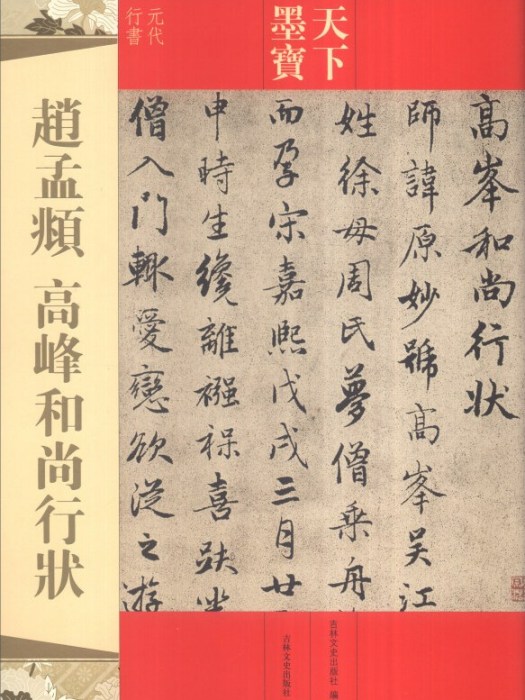 天下
墨寶
元代
行書
趙孟頫 高峰和尚行狀
高峯和尚行状
師諱原妙號高峯吴江
姓徐母周氏夢僧乘舟
而孕宋嘉熙戊戌三月廿
申時生纔離襁褓喜趺坐
僧入門輒愛戀欲從之游
吉林文史出版社 編
吉林文史出版社